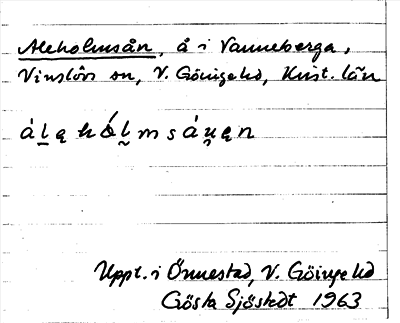 Aleholmsån, å i Vanneberga,
Vinslövs sn, V. Göinge hd, Krist. län
á l ę h ó l m s á u̯ ę n
Uppt. i Önnestad, V. Göinge hd
Gösta Sjöstedt 1963